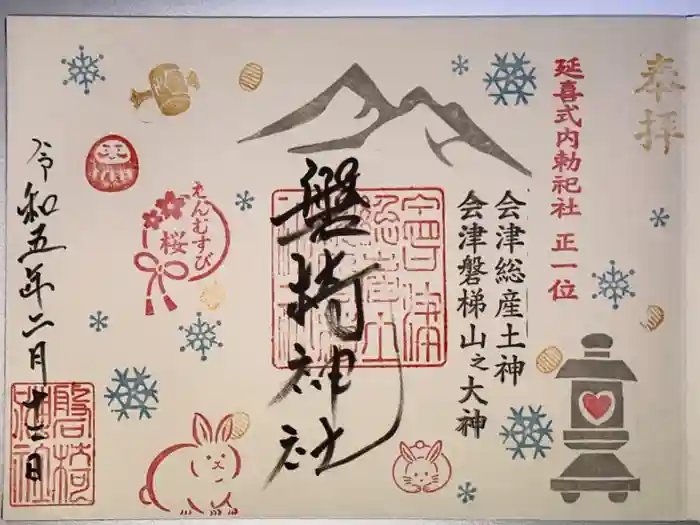 奉拝
延喜式内勅祀社 正一位
会津総産土神
会津磐梯山之大神
磐椅神社
えんむすび
桜
令和五年二月十二日
磐椅神社